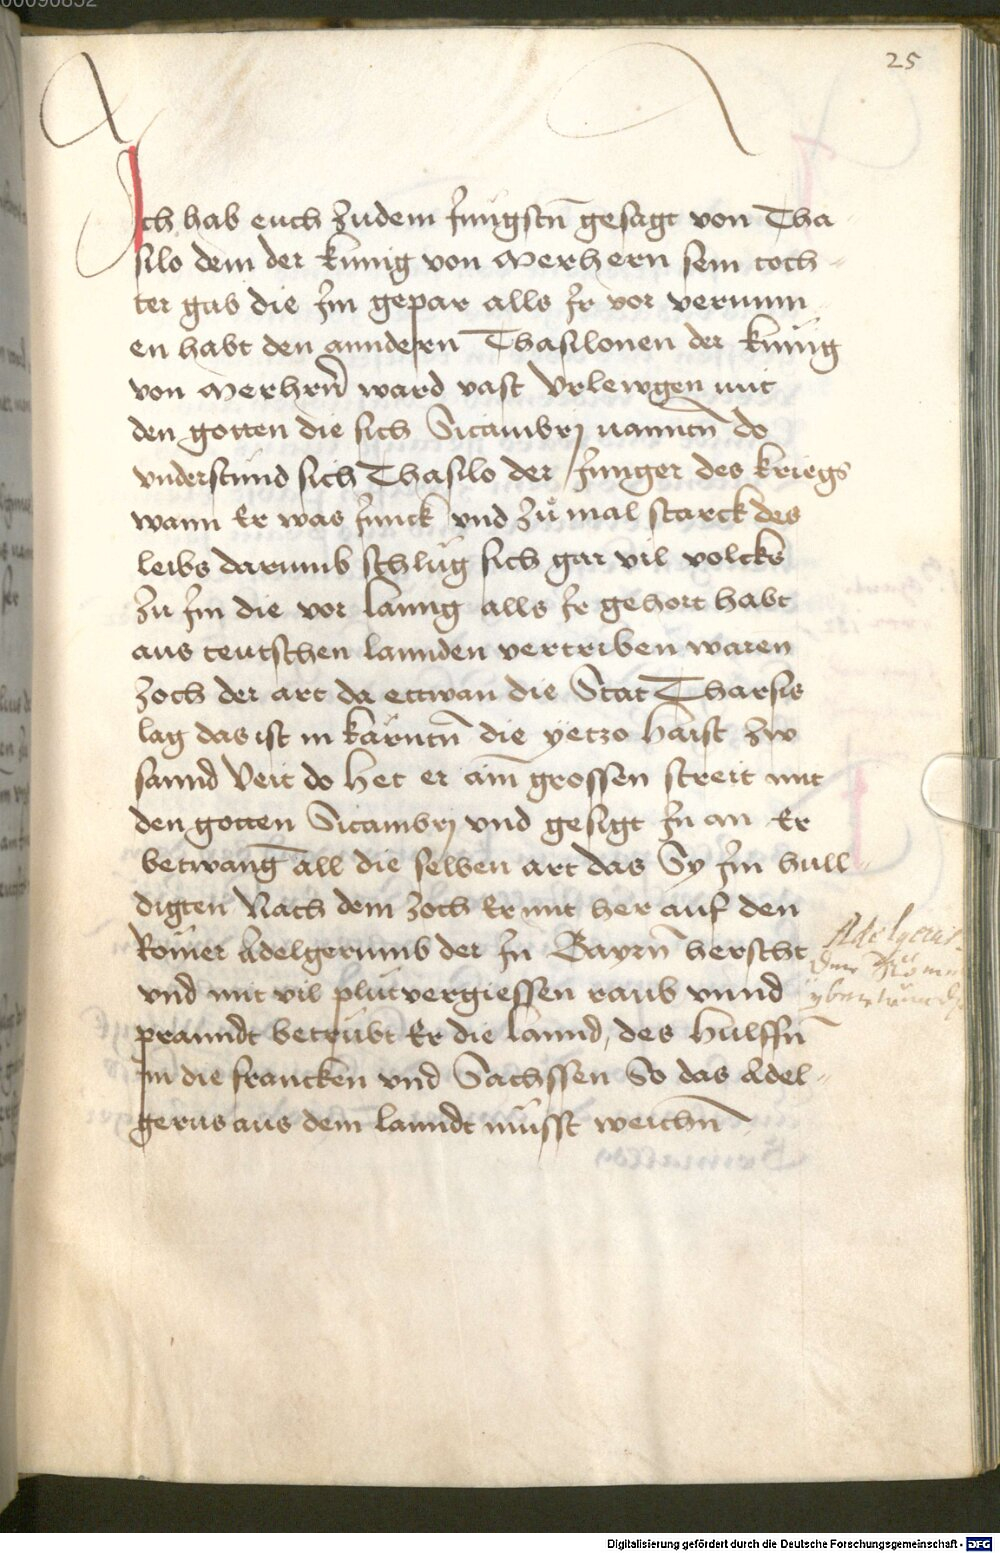 25
Ich hab euch zudem Jungstn̄ gesagt von Tha
silo dem der kunig von Merhern sein toch
ter gab die Jm gepar alls Jr vor vernum
en habt den anndern Thasilonen der kunig
von Merhrn̄ ward vast Vrlewgen mit
den gotten die sich Sicambrj nanntn̄ do
vnderstund sich Thasilo der Junger des kriegs
wann Er was Junck vnd zů mal starck des
leibs darumb schlug sich gar vil volcks
zu Jm die vor lanng alls Jr gehort habt
aus teutschen lannden vertriben waren
zoch der art da ettwan die Stat Tharsis
lag das ist in kärntn̄ die yetzo haist zw
sannd Veit do het er ain̄ grossen streit mit
den gotten Sicambrj vnd gesigt Jn an Er
betwang all die selben art das Sy Jm hull
digten Nach dem zoch Er mit her auf den
Römer Adelgerumb der Jn Bayrn̄ herscht
vnd mit vil plutvergiessen raub vnnd
pranndt betrubt Er die lannd, des hulffn̄
im die francken vnd Sachssen So das Adel
gerus aus dem lanndt musst weichn̄
Adelgerus
der Römer
00090852
Digitalisierung gefördert durch die Deutsche Forschungsgemeinschaft - DFG